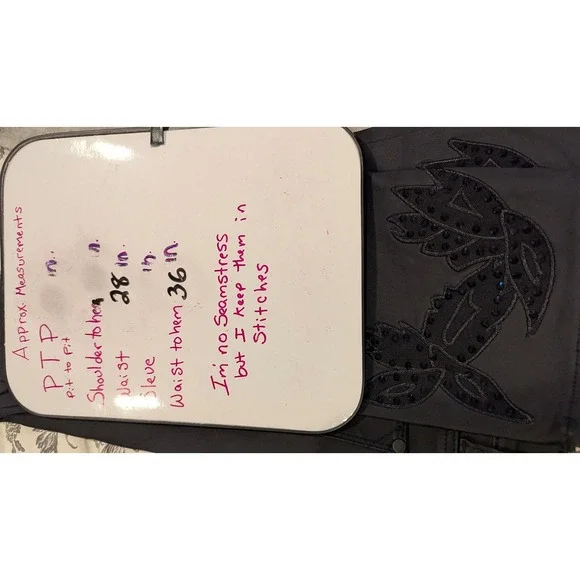 Approx. Measurements
PTP in.
Pit to Pit
Shoulder to hem in.
Waist 28 in.
Sleve in.
Waist to hem 36 in.
I'm no Seamstress
but I keep them in
Stitches